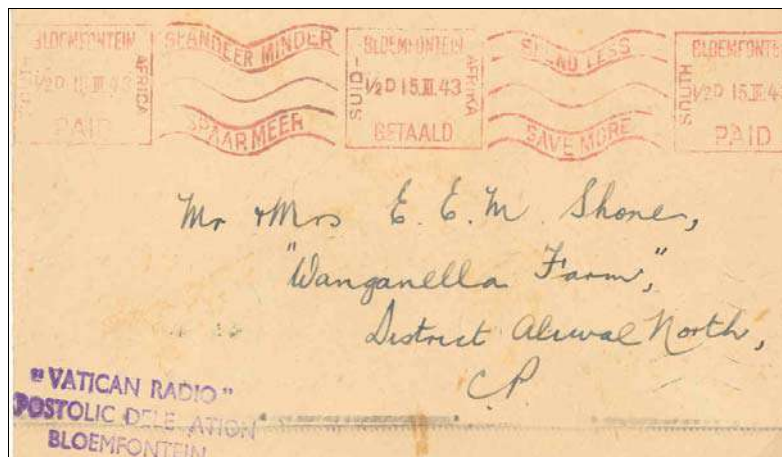 BLOEMFONTEIN
SUID- AFRIKA
½D 15.III.43
PAID
SPANDEER MINDER
SPAAR MEER
BLOEMFONTEIN
SUID- AFRIKA
½D 15.III.43
BETAALD
SPEND LESS
SAVE MORE
BLOEMFONTEIN
SOUTH
½D 15.III.4
PAID
Mr & Mrs E. E. M. Shone,
"Wanganella Farm",
District Aliwal North,
C.P.
"VATICAN RADIO"
POSTOLIC DELE ATION
BLOEMFONTEIN